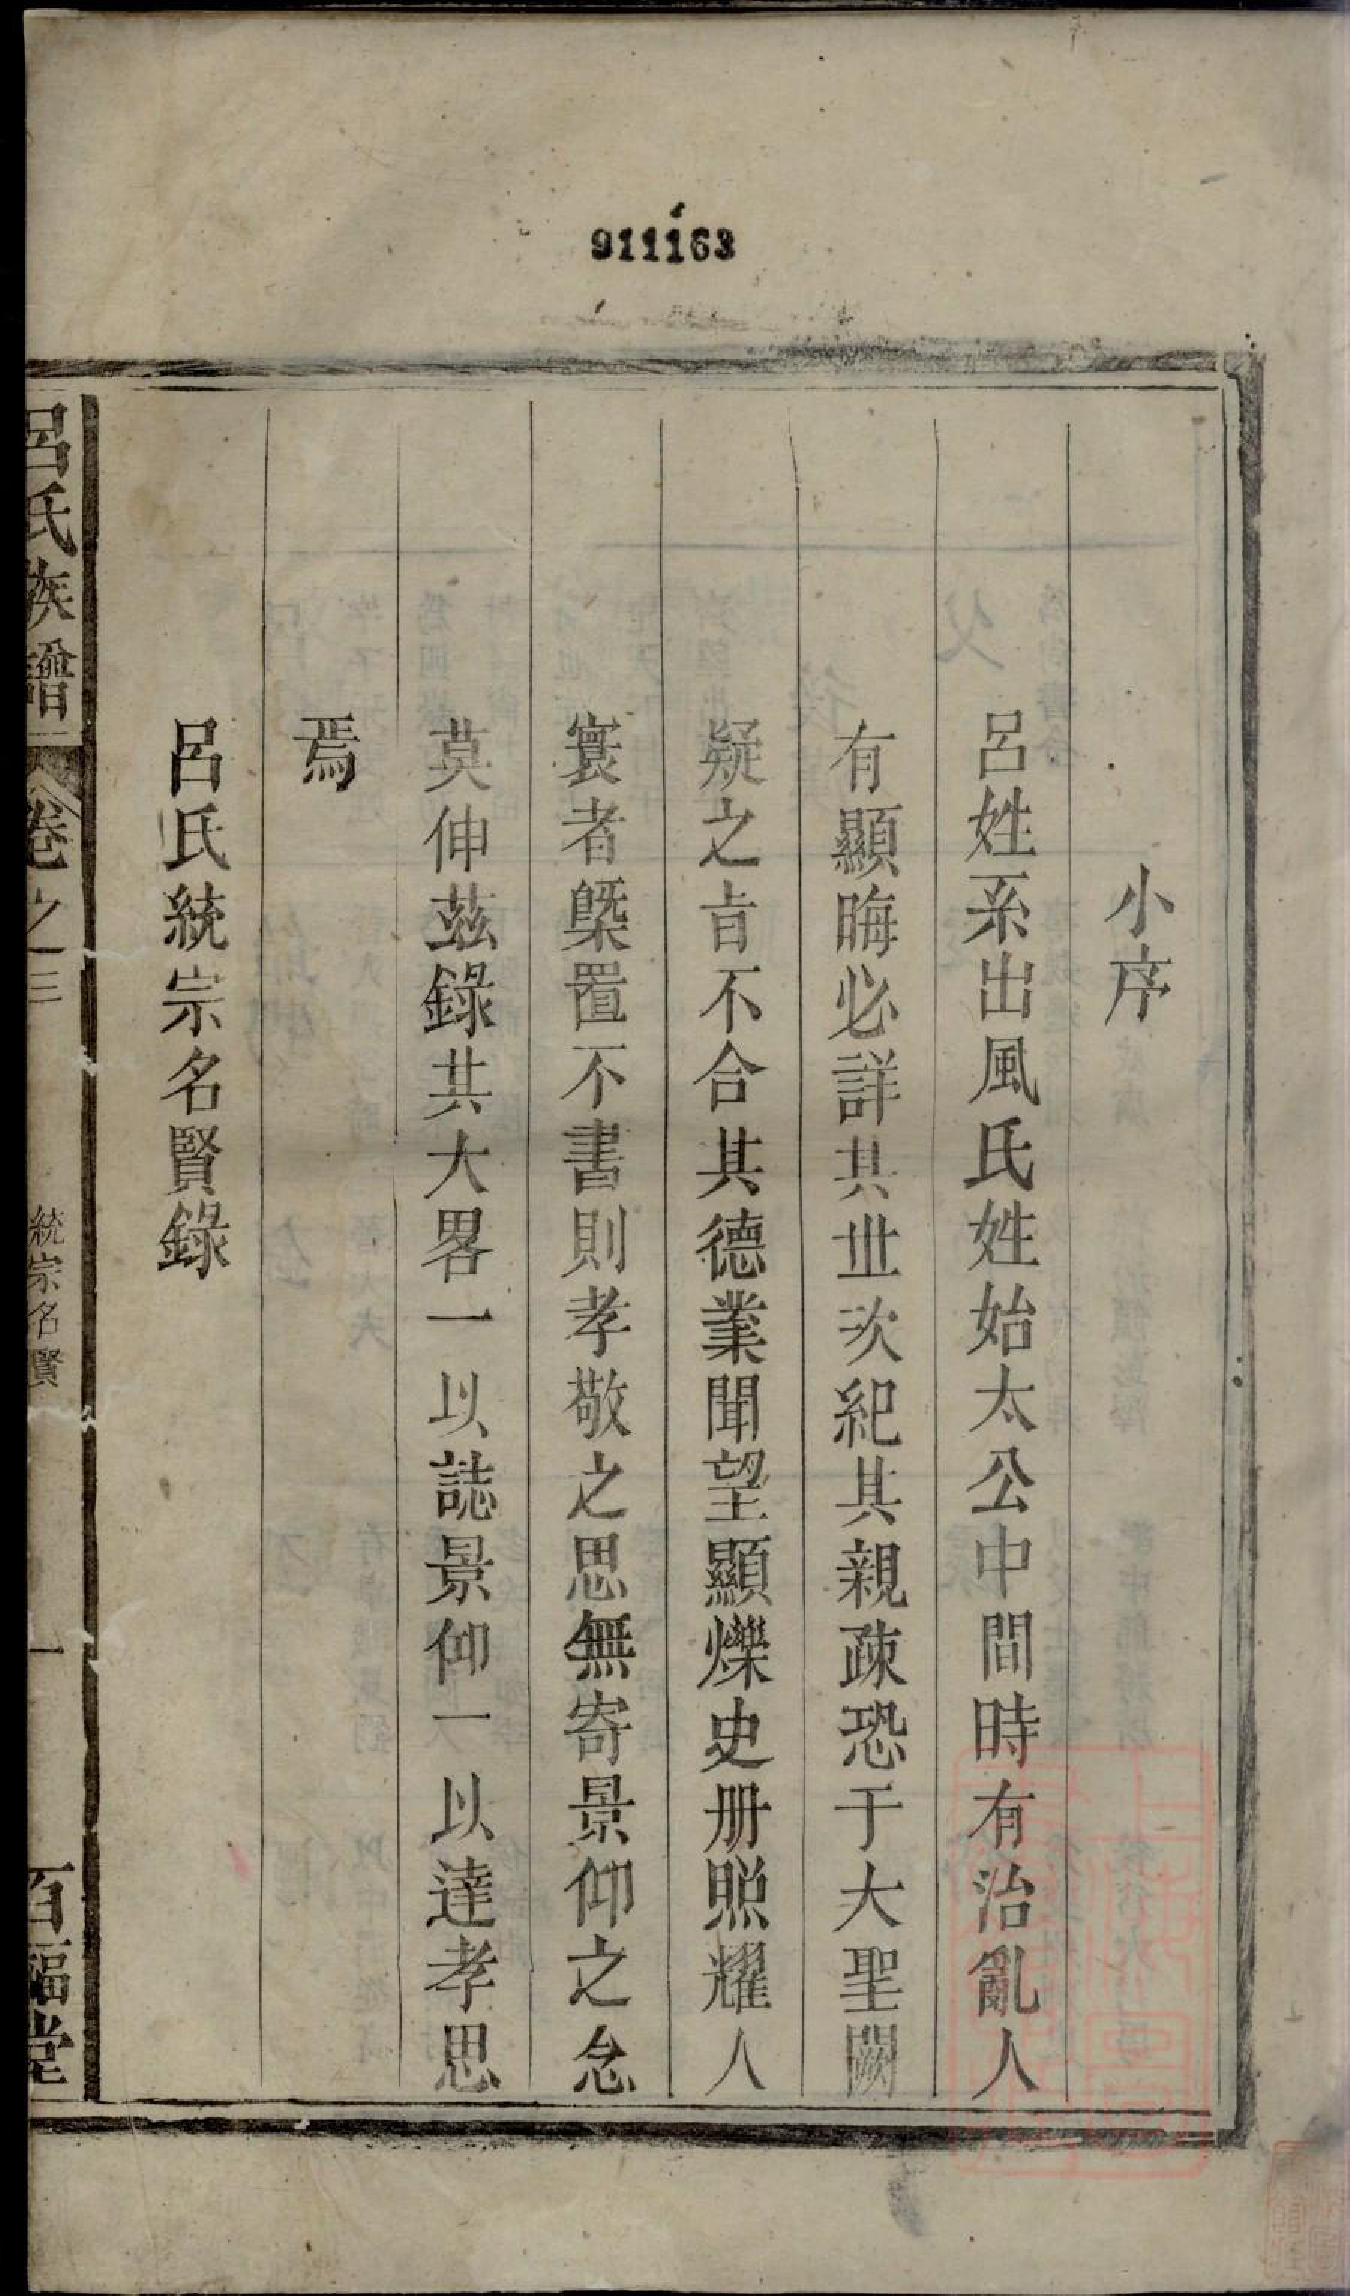 911163
小序
呂姓系出風氏姓始太公中間時有治亂人
有顯晦必詳其世次紀其親疎恐于大聖闕
疑之旨不合其德業聞望顯爍史册照耀人
寰者槩置不書則孝敬之思無寄景仰之念
莫伸茲錄其大畧一以誌景仰一以達孝思
焉
呂氏統宗名賢錄
呂氏族譜
卷之三
統宗名賢
一
百福堂